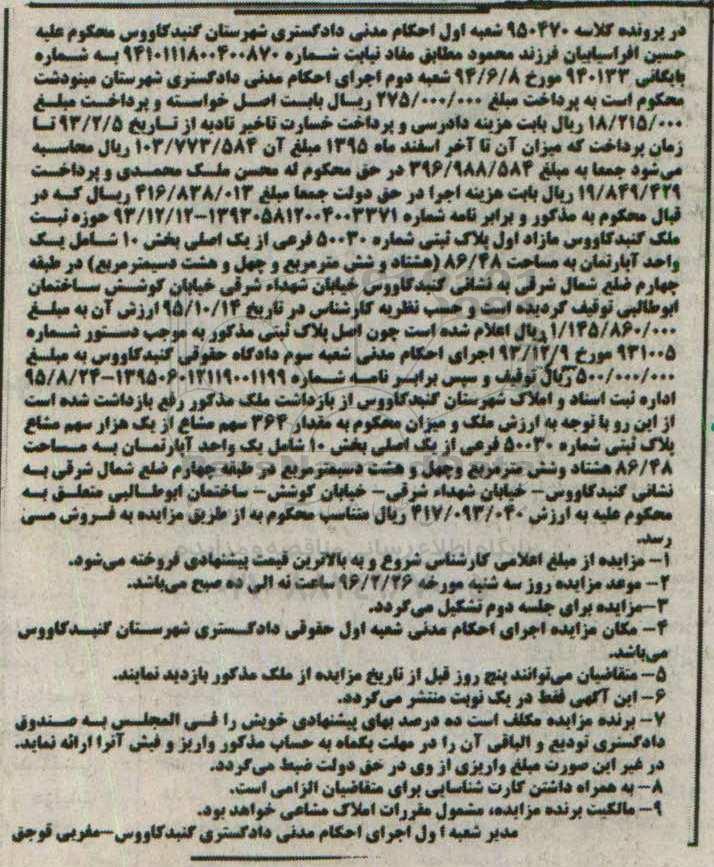 در پرونده کلاسه ۹۵۰۴۷۰ شعبه اول احکام مدنی دادگستری شهرستان گنبدکاووس محکوم علیه
حسین افراسیابیان فرزند محمود مطابق مفاد نیابت شماره ۹۴۱۰۱۱۱۸۰۰۴۰۰۸۷۰ به شماره
بایگانی ۹۴۰۱۳۳ مورخ ۹۴/۶/۸ شعبه دوم اجرای احکام مدنی دادگستری شهرستان مینودشت
محکوم است به پرداخت مبلغ ۲۷۵/۰۰۰/۰۰۰ ریال بابت اصل خواسته و پرداخت مبلغ
۱۸/۲۱۵/۰۰۰ ریال بابت هزینه دادرسی و پرداخت خسارت تاخیر تادیه از تاریخ ۹۳/۲/۵ تا
زمان پرداخت که میزان آن تا آخر اسفند ماه ۱۳۹۵ مبلغ آن ۱۰۳/۷۷۳/۵۸۴ ریال محاسبه
می‌شود جمعا به مبلغ ۳۹۶/۹۸۸/۵۸۴ در حق محکوم له محسن ملک محمدی و پرداخت
۱۹/۸۴۹/۴۲۹ ریال بابت هزینه اجرا در حق دولت جمعا مبلغ ۴۱۶/۸۳۸/۰۱۳ ریال که در
قبال محکوم به مذکور و برابر نامه شماره ۱۳۹۳۰۵۸۱۲۰۰۴۰۰۳۳۷۱-۹۳/۱۲/۱۲ حوزه ثبت
ملک گنبدکاووس مازاد اول پلاک ثبتی شماره ۵۰۰۳۰ فرعی از یک اصلی بخش ۱۰ شامل یک
واحد آپارتمان به مساحت ۸۶/۴۸ (هشتاد و شش مترمربع و چهل و هشت دسیمترمربع) در طبقه
چهارم ضلع شمال شرقی به نشانی گنبدکاووس خیابان شهداء شرقی خیابان کوشش ساختمان
ابوطالبی توقیف گردیده است و حسب نظریه کارشناس در تاریخ ۹۵/۱۰/۱۴ ارزش آن به مبلغ
۱/۱۴۵/۸۶۰/۰۰۰ ریال اعلام شده است چون اصل پلاک ثبتی مذکور به موجب دستور شماره
۹۳۱۰۰۵ مورخ ۹۳/۱۲/۹ اجرای احکام مدنی شعبه سوم دادگاه حقوقی گنبدکاووس به مبلغ
۵۰۰/۰۰۰/۰۰۰ ریال توقیف و سپس برابر نامه شماره ۱۳۹۵۰۶۰۱۲۱۱۹۰۰۱۱۹۹-۹۵/۸/۲۴
اداره ثبت اسناد و املاک شهرستان گنبدکاووس از بازداشت ملک مذکور رفع بازداشت شده است
از این رو با توجه به ارزش ملک و میزان محکوم به مقدار ۳۶۴ سهم مشاع از یک هزار سهم مشاع
پلاک ثبتی شماره ۵۰۰۳۰ فرعی از یک اصلی بخش ۱۰ شامل یک واحد آپارتمان به مساحت
۸۶/۴۸ هشتاد وشش مترمربع وچهل و هشت دسیمترمربع در طبقه چهارم ضلع شمال شرقی به
نشانی گنبدکاووس- خیابان شهداء شرقی- خیابان کوشش- ساختمان ابوطالبی متعلق به
محکوم علیه به ارزش ۴۱۷/۰۹۳/۰۴۰ ریال متناسب محکوم به از طریق مزایده به فروش می
رسد.
۱- مزایده از مبلغ اعلامی کارشناس شروع و به بالاترین قیمت پیشنهادی فروخته می‌شود.
۲- موعد مزایده روز سه شنبه مورخه ۹۶/۲/۲۶ ساعت نه الی ده صبح می‌باشد.
۳-مزایده برای جلسه دوم تشکیل می‌گردد.
۴- مکان مزایده اجرای احکام مدنی شعبه اول حقوقی دادگستری شهرستان گنبدکاووس
می‌باشد.
۵- متقاضیان می‌توانند پنج روز قبل از تاریخ مزایده از ملک مذکور بازدید نمایند.
۶- این آگهی فقط در یک نوبت منتشر می‌گردد.
۷- برنده مزایده مکلف است ده درصد بهای پیشنهادی خویش را فی المجلس به صندوق
دادگستری تودیع و الباقی آن را در مهلت یکماه به حساب مذکور واریز و فیش آنرا ارائه نماید.
در غیر این صورت مبلغ واریزی از وی در حق دولت ضبط می‌گردد.
۸- به همراه داشتن کارت شناسایی برای متقاضیان الزامی است.
۹- مالکیت برنده مزایده، مشمول مقررات املاک مشاعی خواهد بود.
مدیر شعبه ا ول اجرای احکام مدنی دادگستری گنبدکاووس-مقربی قوجق